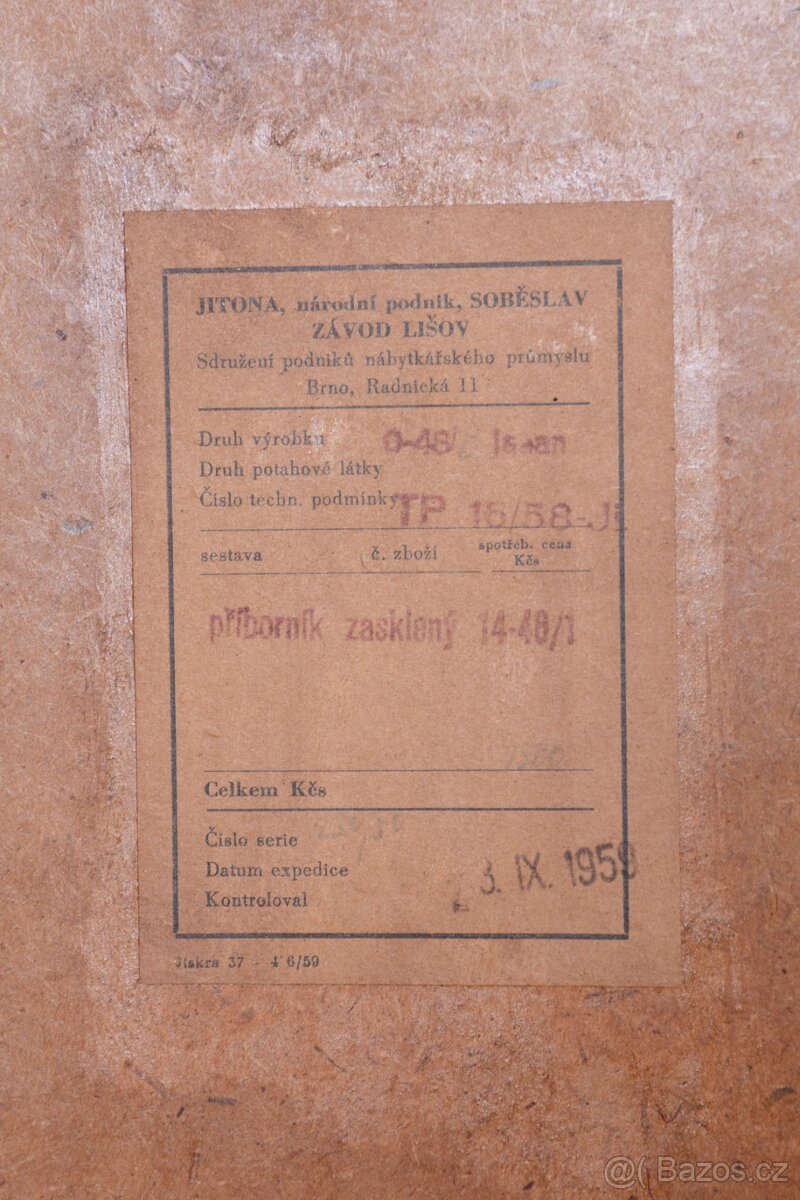 JITONA, národní podnik, SOBĚSLAV
ZÁVOD LIŠOV
Sdružení podniků nábytkářského průmyslu
Brno, Radnická 11
Druh výrobku 0-48/
Druh potahové látky
Číslo techn. podmínky TP 16/58-Ji
sestava č. zboží spotřeb. cena
Kčs
příborník zasklený 14-48/1
Celkem Kčs
Číslo serie
Datum expedice 3. IX. 1959
Kontroloval
Jiskra 37 - 4 6/59
@( Bazos.cz